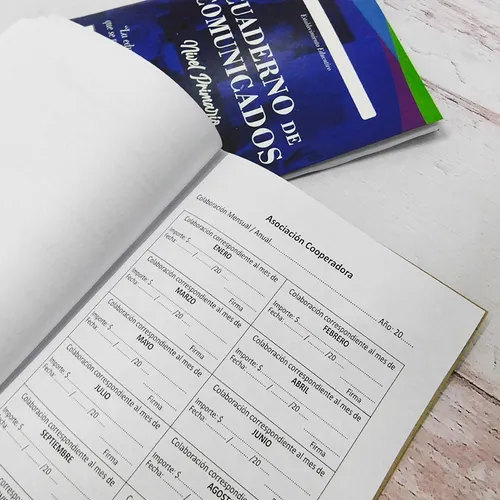 "La edu
que se
Establecimiento Educativo
CUADERNO DE
COMUNICADOS
Nivel Primario
Asociación Cooperadora
Colaboración Mensual / Anual
Año: 20
Colaboración correspondiente al mes de
ENERO
Importe: $
Fecha: / /20
Firma
Colaboración correspondiente al mes de
FEBRERO
Importe: $
Fecha: / /20
Firma
Colaboración correspondiente al mes de
MARZO
Importe: $
Fecha: / /20
Firma
Colaboración correspondiente al mes de
ABRIL
Importe: $
Fecha: / /20
Firma
Colaboración correspondiente al mes de
MAYO
Importe: $
Fecha: / /20
Firma
Colaboración correspondiente al mes de
JUNIO
Importe: $
Fecha: / /20
Firma
Colaboración correspondiente al mes de
JULIO
Importe: $
Fecha: / /20
Firma
Colaboración correspondiente al mes de
AGOS
Colaboración correspondiente al mes de
SEPTIEMBRE
Importe: $
Fecha: / /20